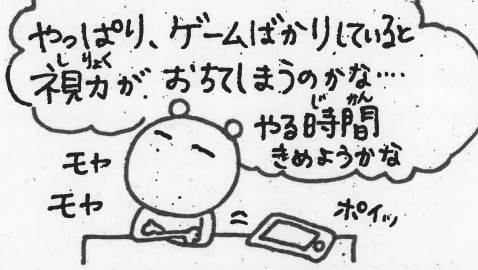 やっぱり、ゲームばかりしていると
視力が おちてしまうのかな‥‥
しりょく
やる時間
じかん
きめようかな
モヤ
モヤ
ポイッ